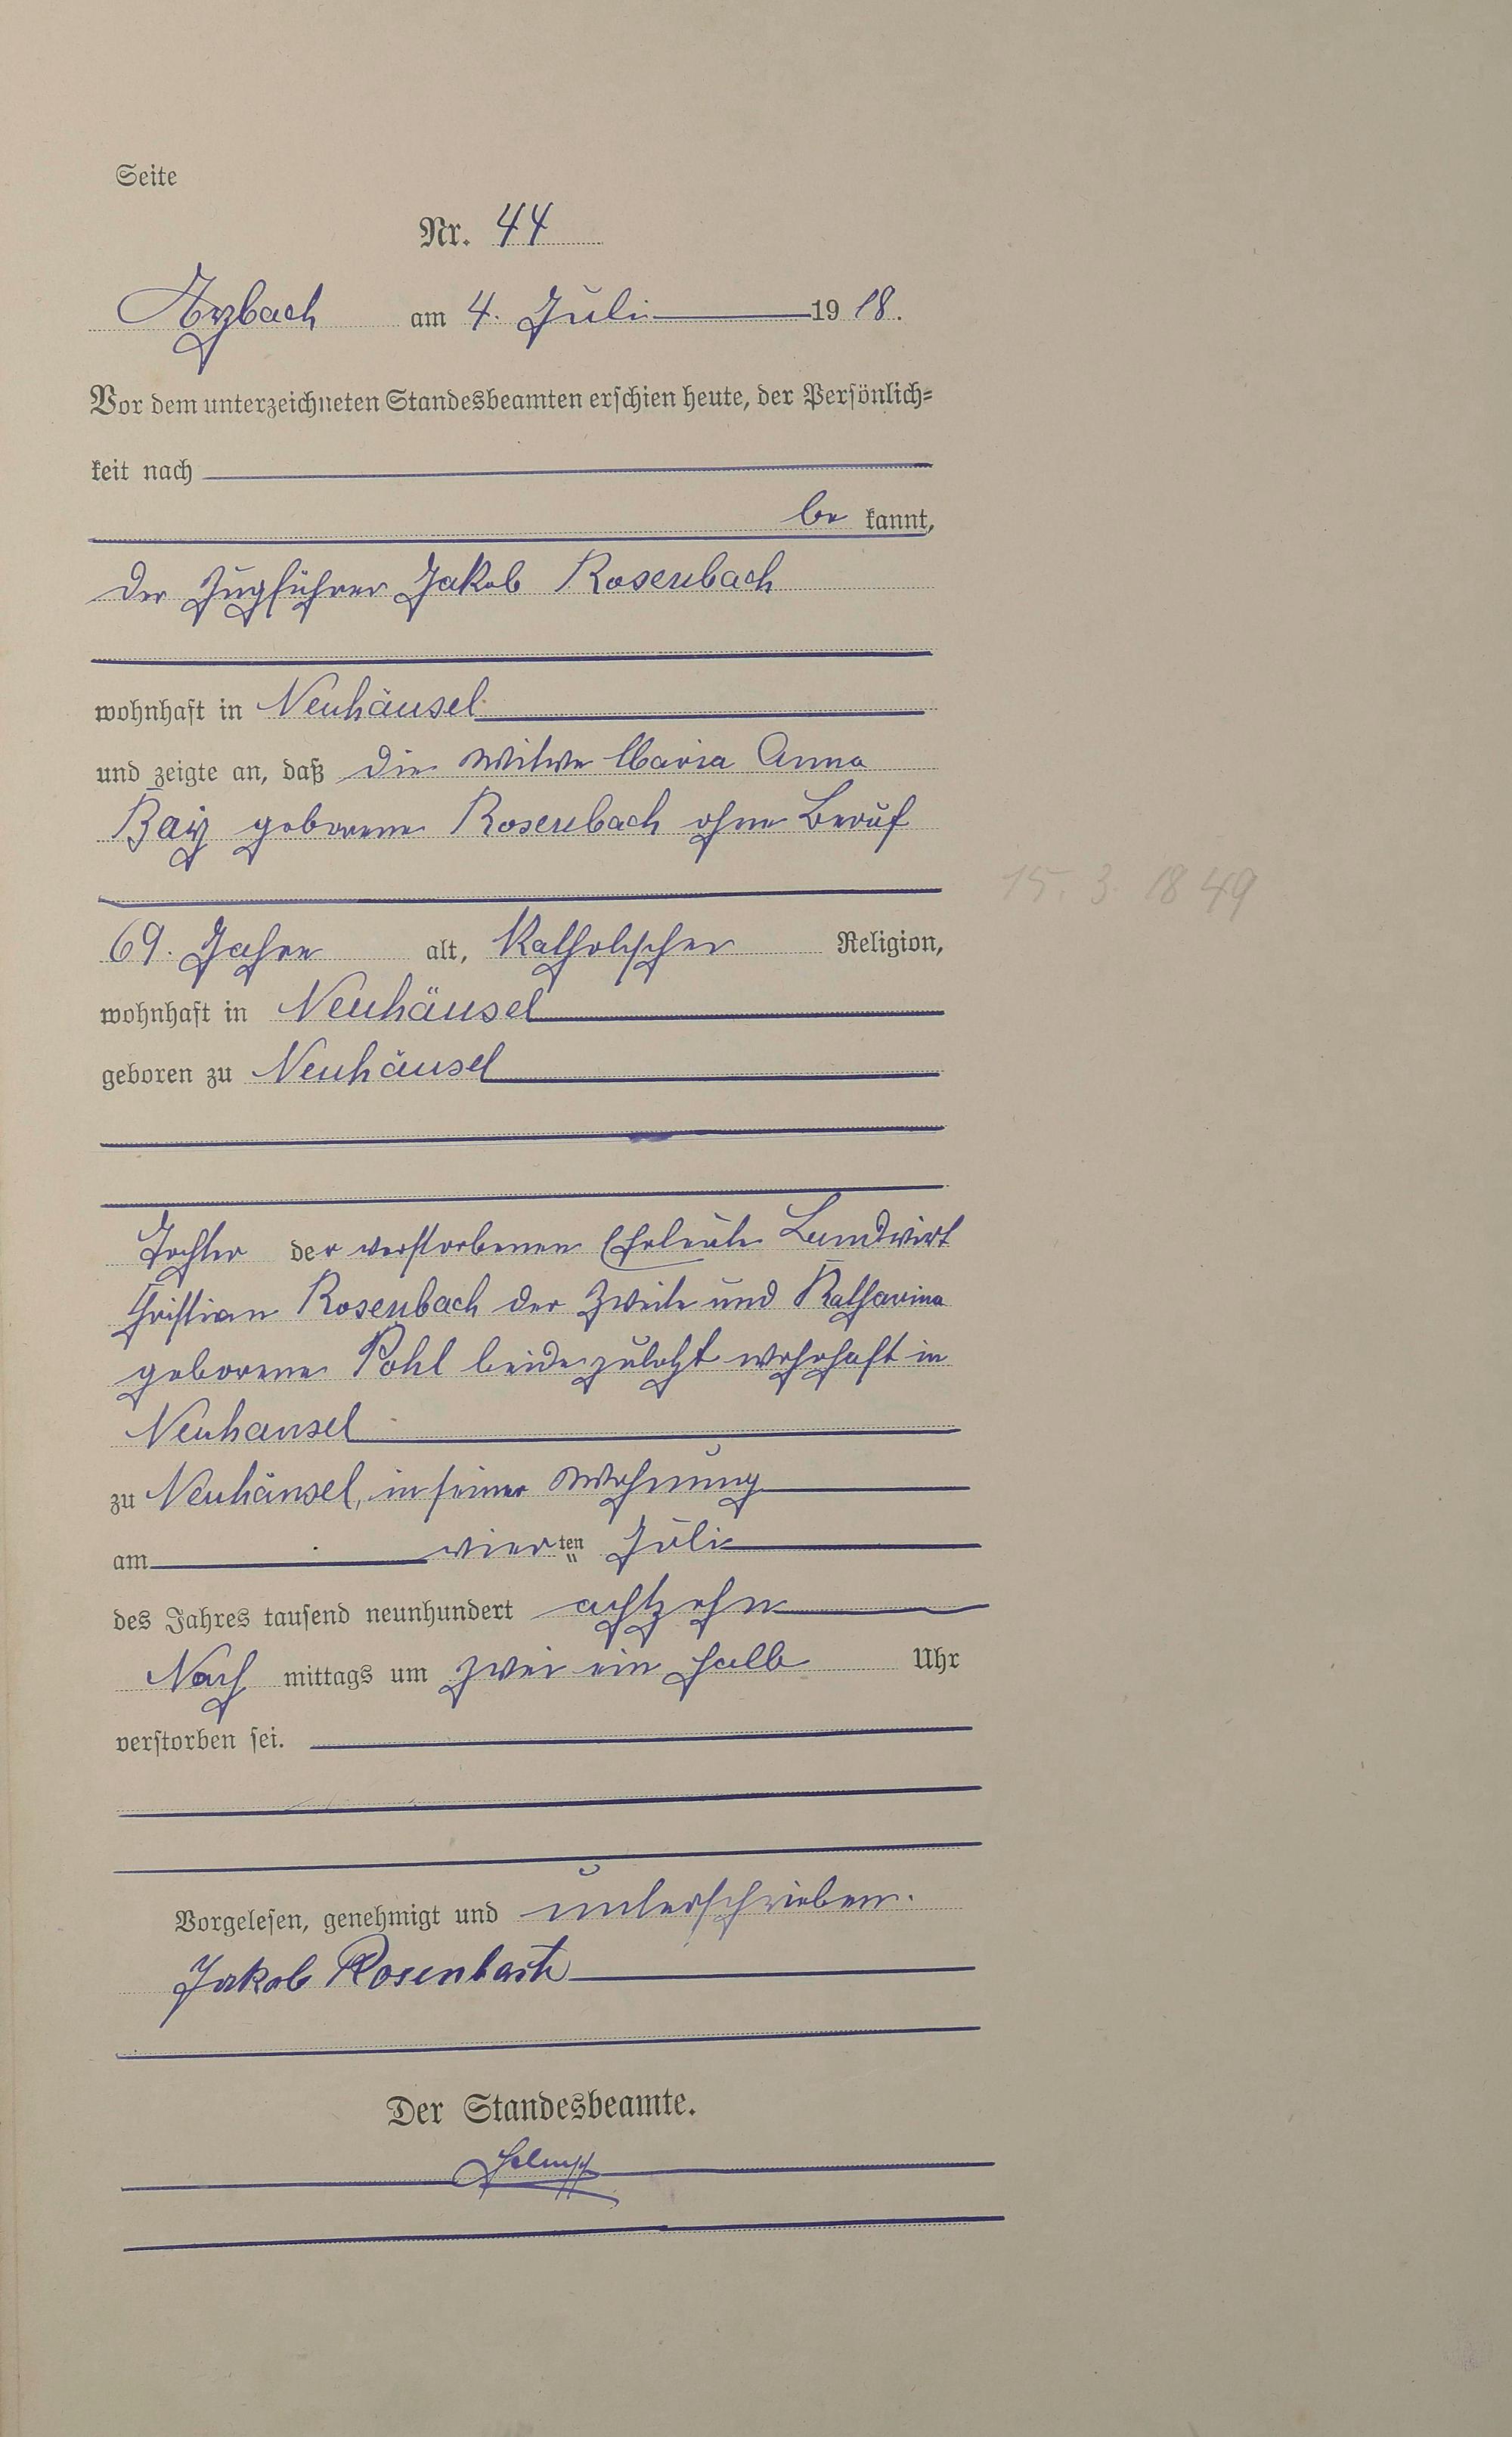 Seite
Nr. 44
Arzbach am 4. Juli 1918.
Vor dem unterzeichneten Standesbeamten erschien heute, der Persönlich=
keit nach
be kannt,
der Zugführer Jakob Rosenbach
wohnhaft in Neuhäusel
und zeigte an, daß die Witwe Maria Anna
Bay geborene Rosenbach ohne Beruf
15. 3. 1849
69. Jahre alt, Katholischer Religion,
wohnhaft in Neuhäusel
geboren zu Neuhäusel
Tochter der verstorbenen Eheleute Landwirt
Christian Rosenbach der Zweite und Katharina
geborene Pohl beide zuletzt wohnhaft in
Neuhausel
zu Neuhäusel, in seiner Wohnung
am vier ten Juli
des Jahres tausend neunhundert achtzehn
Nach mittags um zwei ein halb Uhr
verstorben sei.
Vorgelesen, genehmigt und unterschrieben.
Jakob Rosenbach
Der Standesbeamte.